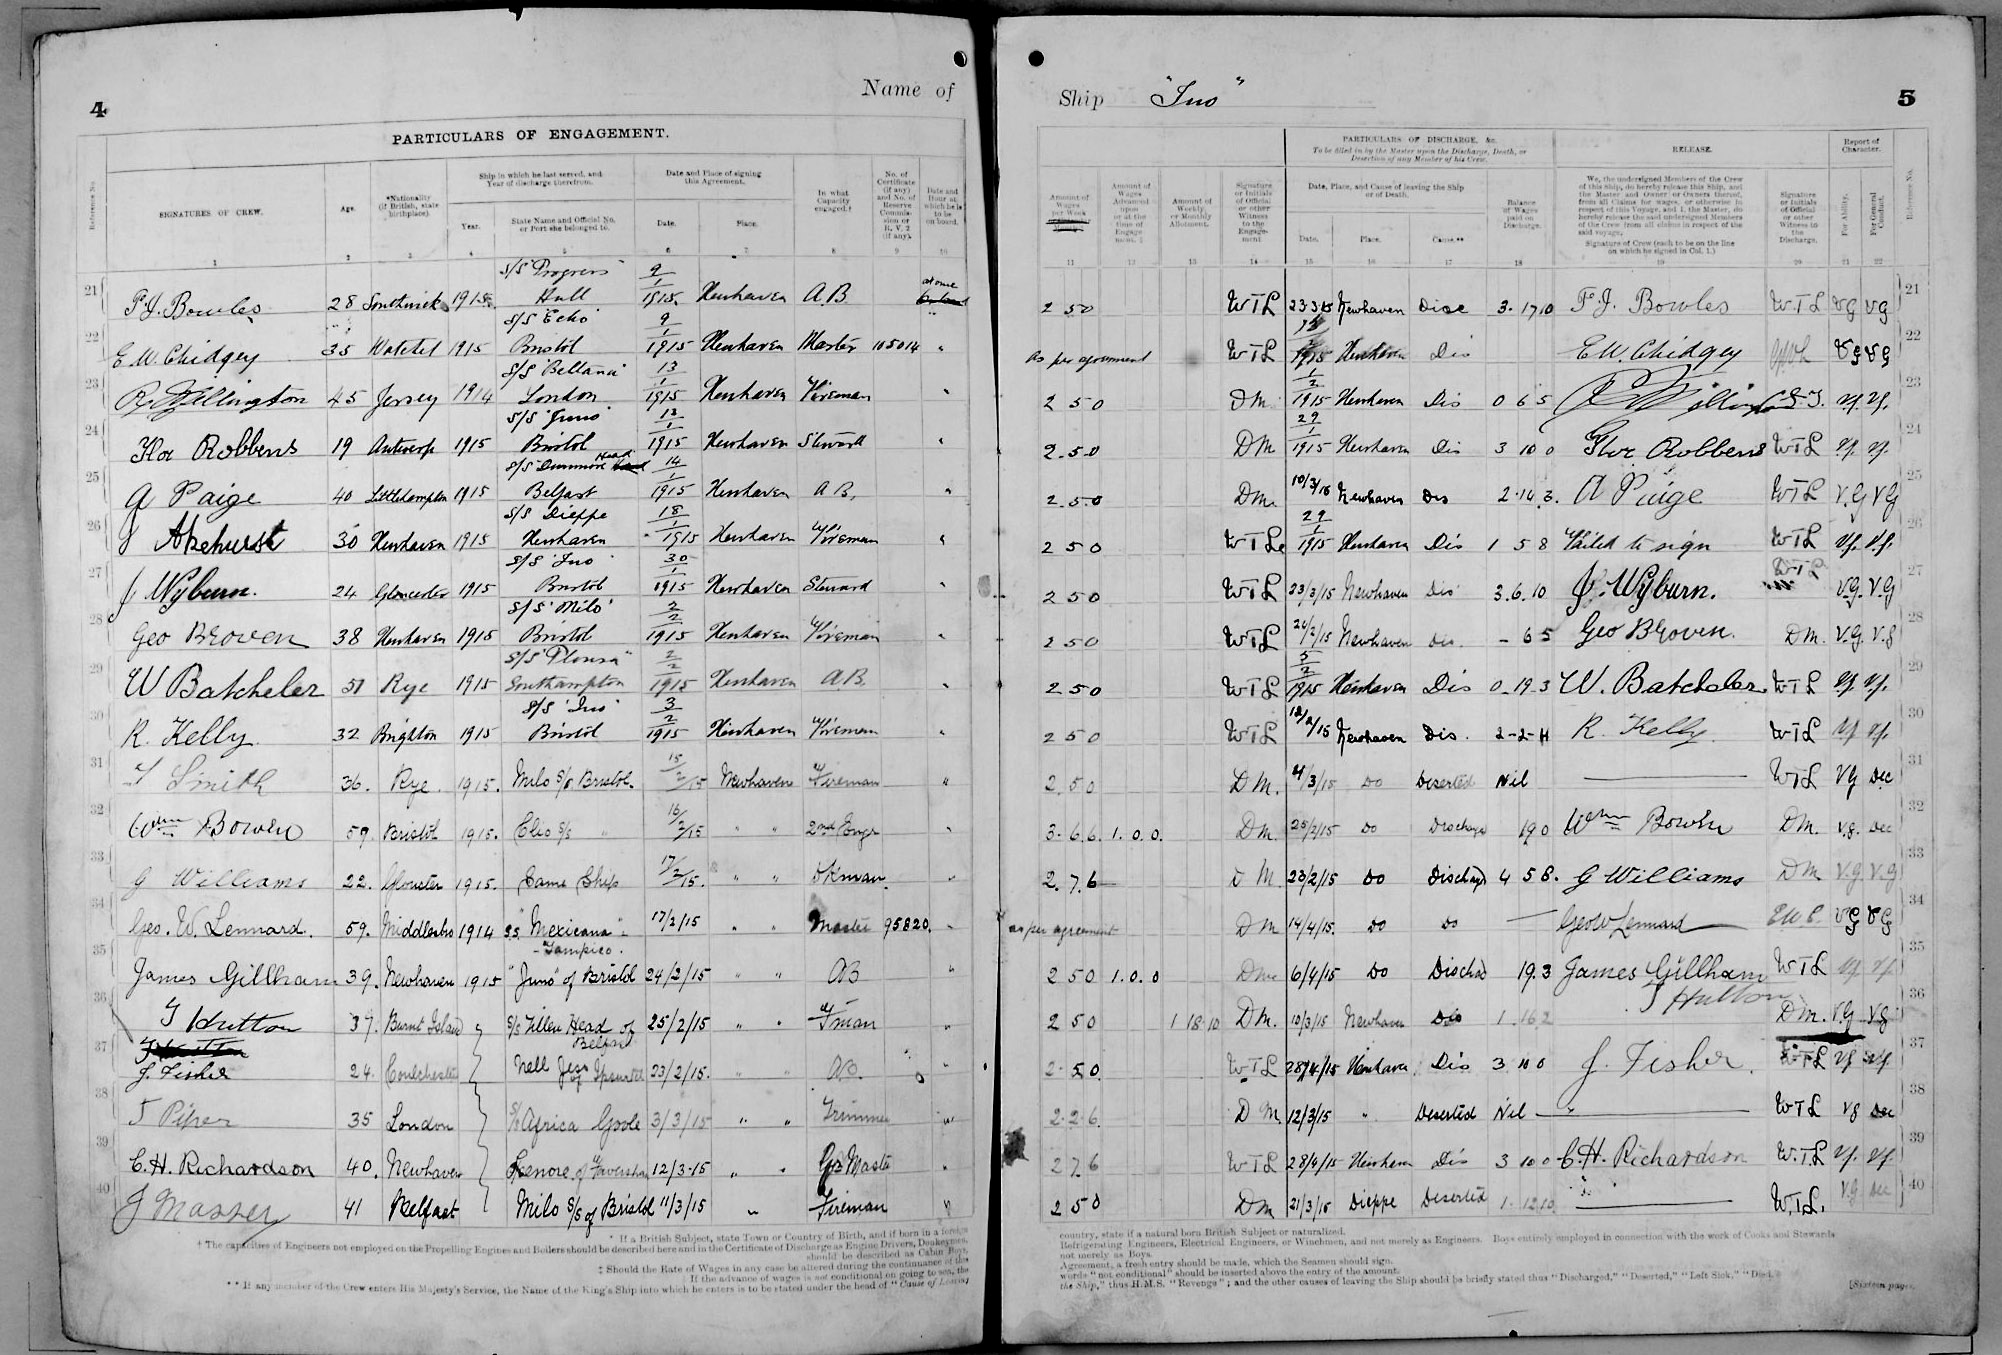 4
Name of
PARTICULARS OF ENGAGEMENT.
Reference No.
SIGNATURES OF CREW.
Age.
*Nationality (If British, state birthplace).
Ship in which he last served, and Year of discharge therefrom.
Year.
State Name and Official No. or Port she belonged to.
Date and Place of signing this Agreement.
Date.
Place.
In what Capacity engaged.†
No. of Certificate (if any) and No. of Reserve Commission or R.V. 2 (if any).
Date and Hour at which he is to be on board.
1 2 3 4 5 6 7 8 9 10
21 F.J. Bowles 28 Southwick 1915 S/S "Progress" Hull 9/1 1915 Newhaven A.B. at once
22 E.W. Chidgey 35 Watchet 1915 S/S "Echo" Bristol 9/1 1915 Newhaven Master 105014 "
23 45 Jersey 1914 S/S London 13/1 1915 Newhaven Fireman "
24 Robbens 19 Antwerp 1915 S/S "Juno" Bristol 13/1 1915 Newhaven Steward "
25 A Paige 40 Littlehampton 1915 S/S Dunmore Head Belfast 14/1 1915 Newhaven A.B. "
26 J Akehurst 30 Newhaven 1915 S/S Dieppe Newhaven 18/1 1915 Newhaven Fireman "
27 J Wyburn. 24 Gloucester 1915 S/S "Ino" Bristol 30/1 1915 Newhaven Steward "
28 Geo Broven 38 Newhaven 1915 S/S "Milo" Bristol 2/2 1915 Newhaven Fireman "
29 W Batcheler 51 Rye 1915 S/S Southampton 2/2 1915 Newhaven A.B. "
30 R. Kelly 32 Brighton 1915 S/S "Ino" Bristol 3/2 1915 Newhaven Fireman "
31 Smith 36. Rye. 1915. Milo S/S Bristol. 15/2/15 Newhaven Fireman "
32 Wm Bowen 59. Bristol 1915. Clio S/S " 16/2/15 " " 2nd Engr "
33 G Williams 22. Gloucester 1915. Same Ship 17/2/15. " " "
34 Geo. W. Lennard. 59. Middlesbro 1914 S.S. "Mexicana" - Tampico. 17/2/15 " " Master 95820. "
35 James Gillham 39. Newhaven 1915 "Juno" of Bristol 24/2/15 " " AB "
36 J Hutton 37. Burnt Island S/S Fillen Head of Belfast 25/2/15 " " F'man "
37 J. Fisher 24. Coulchester Nell Jess of Ipswich 23/2/15. " " AB.
38 Piper 35 London S/S Africa Goole 3/3/15 " " Trimmer "
39 C.H. Richardson 40. Newhaven Lenore of Faversham 12/3-15 " " "
40 J Massey 41 Belfast Milo S/S of Bristol 11/3/15 " Fireman "
* If a British Subject, state Town or Country of Birth, and if born in a foreign
† The capacities of Engineers not employed on the Propelling Engines and Boilers should be described here and in the Certificate of Discharge as Engine Drivers, Donkeymen,
should be described as Cabin Boys,
‡ Should the Rate of Wages in any case be altered during the continuance of this
If the advance of wages is not conditional on going to sea, the
** If any member of the Crew enters His Majesty's Service, the Name of the King's Ship into which he enters is to be stated under the head of "Cause of Leaving
Ship "Ino"
5
Amount of Wages per Week
Amount of Wages Advanced upon or at the time of Engagement. ‡
Amount of Weekly or Monthly Allotment.
Signature or Initials of Official or other Witness to the Engagement
PARTICULARS OF DISCHARGE, &c.
To be filled in by the Master upon the Discharge, Death, or Desertion of any Member of his Crew.
Date, Place, and Cause of leaving the Ship or of Death.
Date.
Place.
Cause.**
Balance of Wages paid on Discharge.
RELEASE.
We, the undersigned Members of the Crew of this Ship, do hereby release this Ship, and the Master and Owner or Owners thereof, from all Claims for wages, or otherwise in respect of this Voyage, and I, the Master, do hereby release the said undersigned Members of the Crew from all claims in respect of the said voyage.
Signature of Crew (each to be on the line on which he signed in Col. 1.)
Signature or Initials of Official or other Witness to the Discharge.
Report of Character.
For Ability.
For General Conduct.
Reference No.
11 12 13 14 15 16 17 18 19 20 21 22
2 50 WTL 23 3 15 Newhaven Disc 3. 17 10 F.J. Bowles W.T.L VG VG 21
As per agreement WTL 1915 Newhaven Dis E.W. Chidgey VG VG 22
2 50 DM. 1/2 1915 Newhaven Dis 0 6 5 23
2. 5. 0 DM 29/1 1915 Newhaven Dis 3 10 0 Robbens WTL 24
2. 5. 0 DM. 10/3/15 Newhaven Dis 2. 14. 3. A Paige WTL V.G VG 25
2 5 0 WTL 29/1 1915 Newhaven Dis 1 5 8 Failed to sign WTL 26
2 5 0 WTL 23/3/15 Newhaven Dis 3. 6. 10 J. Wyburn. V.G. V.G 27
2 5 0 WTL 24/2/15 Newhaven Dis. - 6 5 Geo Broven. DM. V.G. V.G 28
2 5 0 WTL 5/2 1915 Newhaven Dis 0. 19. 3 W. Batcheler WTL 29
2 5 0 WTL 12/2/15 Newhaven Dis. R. Kelly WTL 30
2. 5. 0 DM. /3/15 Do Deserted Nil WTL VG Dec 31
3. 6. 6. 1. 0. 0. DM. 25/2/15 Do Discharged 19 0 Wm Bowen DM. V.G. Dec 32
2. 7. 6 DM. 23/2/15 Do Discharged 4 5 8. G Williams DM V.G V.G 33
as per agreement DM 14/4/15. Do Do Geo W Lennard VG VG 34
2 5 0 1. 0. 0 DM 6/4/15 Do Dischd 19. 3 James Gillham WTL 35
2 5 0 1 18 10 DM. 10/3/15 Newhaven Dis 1. 16 2 J Hutton DM. V.G VG 36
2. 5. 0. WTL 28/4/15 Newhaven Dis 3 10 0 J. Fisher. WTL 37
2. 2. 6. DM 12/3/15 " Deserted Nil WTL VG Dec 38
2 7 6 WTL 28/4/15 Newhaven Dis 3 10 0 C.H. Richardson W.T.L 39
2 5 0 DM 21/3/15 Dieppe Deserted 1. 12 10 W.T.L. V.G. Dec 40
country, state if a natural born British Subject or naturalized.
Refrigerating Engineers, Electrical Engineers, or Winchmen, and not merely as Engineers. Boys entirely employed in connection with the work of Cooks and Stewards
not merely as Boys.
Agreement, a fresh entry should be made, which the Seamen should sign.
words "not conditional" should be inserted above the entry of the amount.
the Ship," thus H.M.S. "Revenge"; and the other causes of leaving the Ship should be briefly stated thus "Discharged," "Deserted," "Left Sick," "Died."
[Sixteen pages.